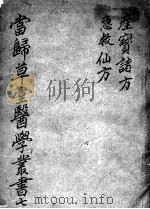 產寶諸方
急救仙方
當歸草堂醫學叢書七